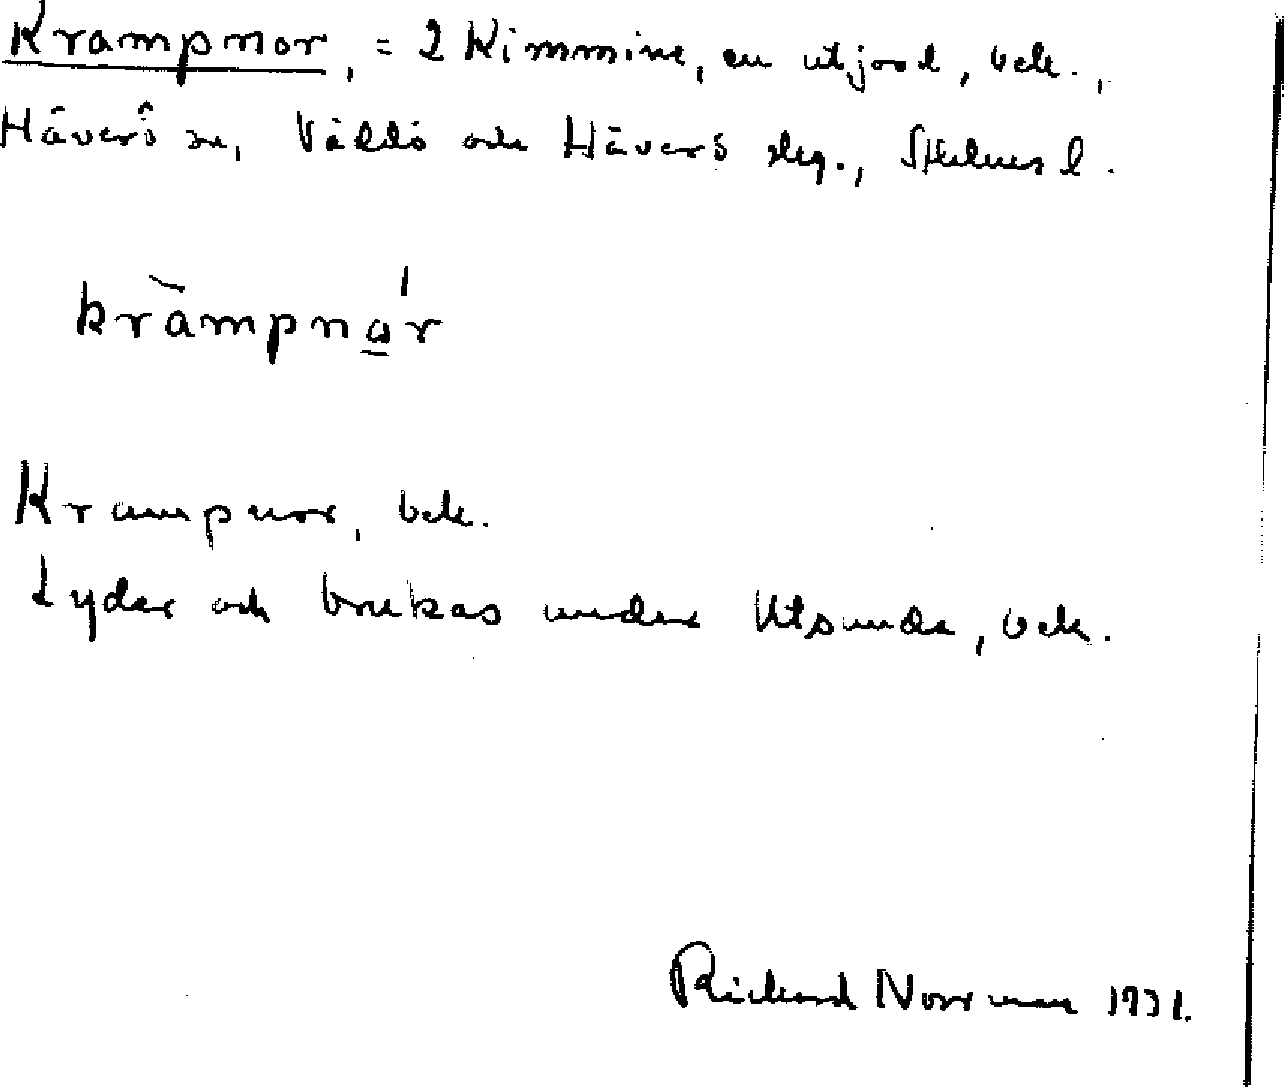 Krampnor, = 2 Kimmine, en utjord, bek.,
Häverö sn, Väddö och Häverö skg., Sthlms l.
kràmpnǻr
Krampnor, bek.
Lyder och brukas under Utsunda, bek.
Rickard Norrman 1931.